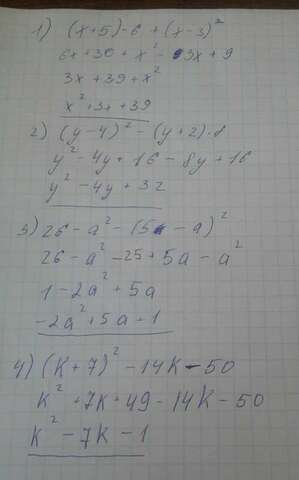 1) (x+5)·6 + (x-3)²
6x+30 + x² - 3x + 9
3x + 39 + x²
x² + 3x + 39
2) (y-4)² - (y+2)·8
y² - 4y + 16 - 8y + 16
y² - 4y + 32
3) 26 - a² - (5 - a)²
26 - a² - 25 + 5a - a²
1 - 2a² + 5a
-2a² + 5a + 1
4) (k+7)² - 14k - 50
k² + 7k + 49 - 14k - 50
k² - 7k - 1